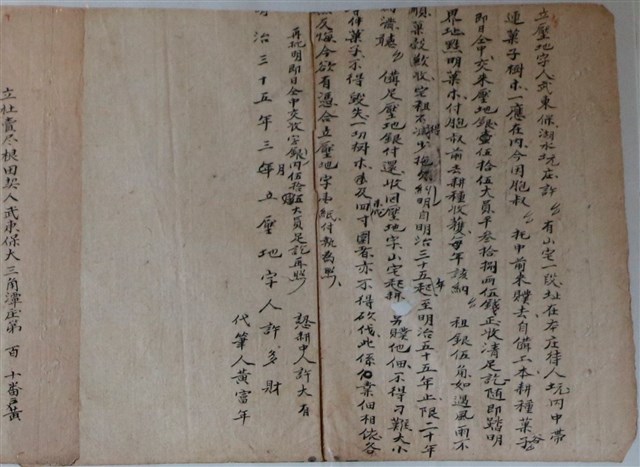 立壓地字人武東保湖水坑庄許 有山宅一段址在本庄待人坑內中帶
連菓子樹木一應在內今因胞叔 托中前來贌去自備工本耕種菓子
即日仝中交來壓地銀壹伍拾伍大員平叁拾捌両伍錢正收清足訖隨即踏明
界址點明菓木付胞叔前去耕種收穫每年該納 租銀伍角如遇風雨不
順菓穀歉收定租不得減少拖欠約明自明治三十五年起至明治五十五年止限二十年
為滿聽 備足壓地銀付還收回壓地字山宅起耕另贌他佃不得刁難大小
菓子不得毀失一切樹木及四寸圍者亦不得砍伐此係分業佃相依各
反悔今欲有憑合立壓地字壹紙付執為照
再批明即日仝中交收字銀內伍拾伍大員足訖再照
認耕中人許大有
治三十五年三月 立壓地字人許多財
代筆人黃富年
立杜賣尽根田契人武東保大三角潭庄第百十番戶黃